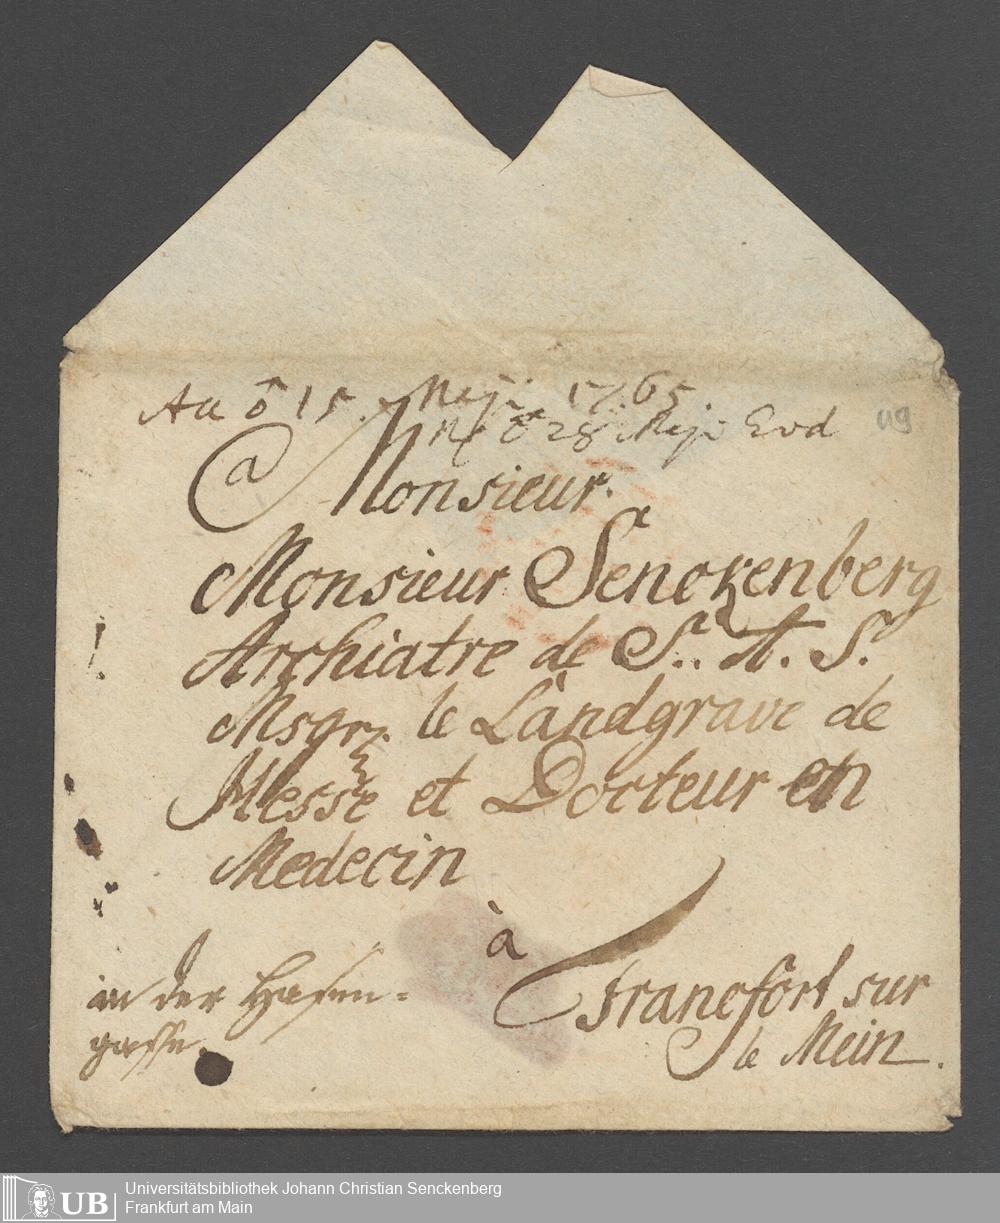 15. Maji 1765.
28 Maji
119
a Monsieur.
Monsieur Senckenberg
Archiatre de S. A. S.
Msgr. le Landgrave de
Hesse et Docteur en
Medecin
à
Francfort sur
le Mein.
in der Hasen-
gasse.
UB
Universitätsbibliothek Johann Christian Senckenberg
Frankfurt am Main